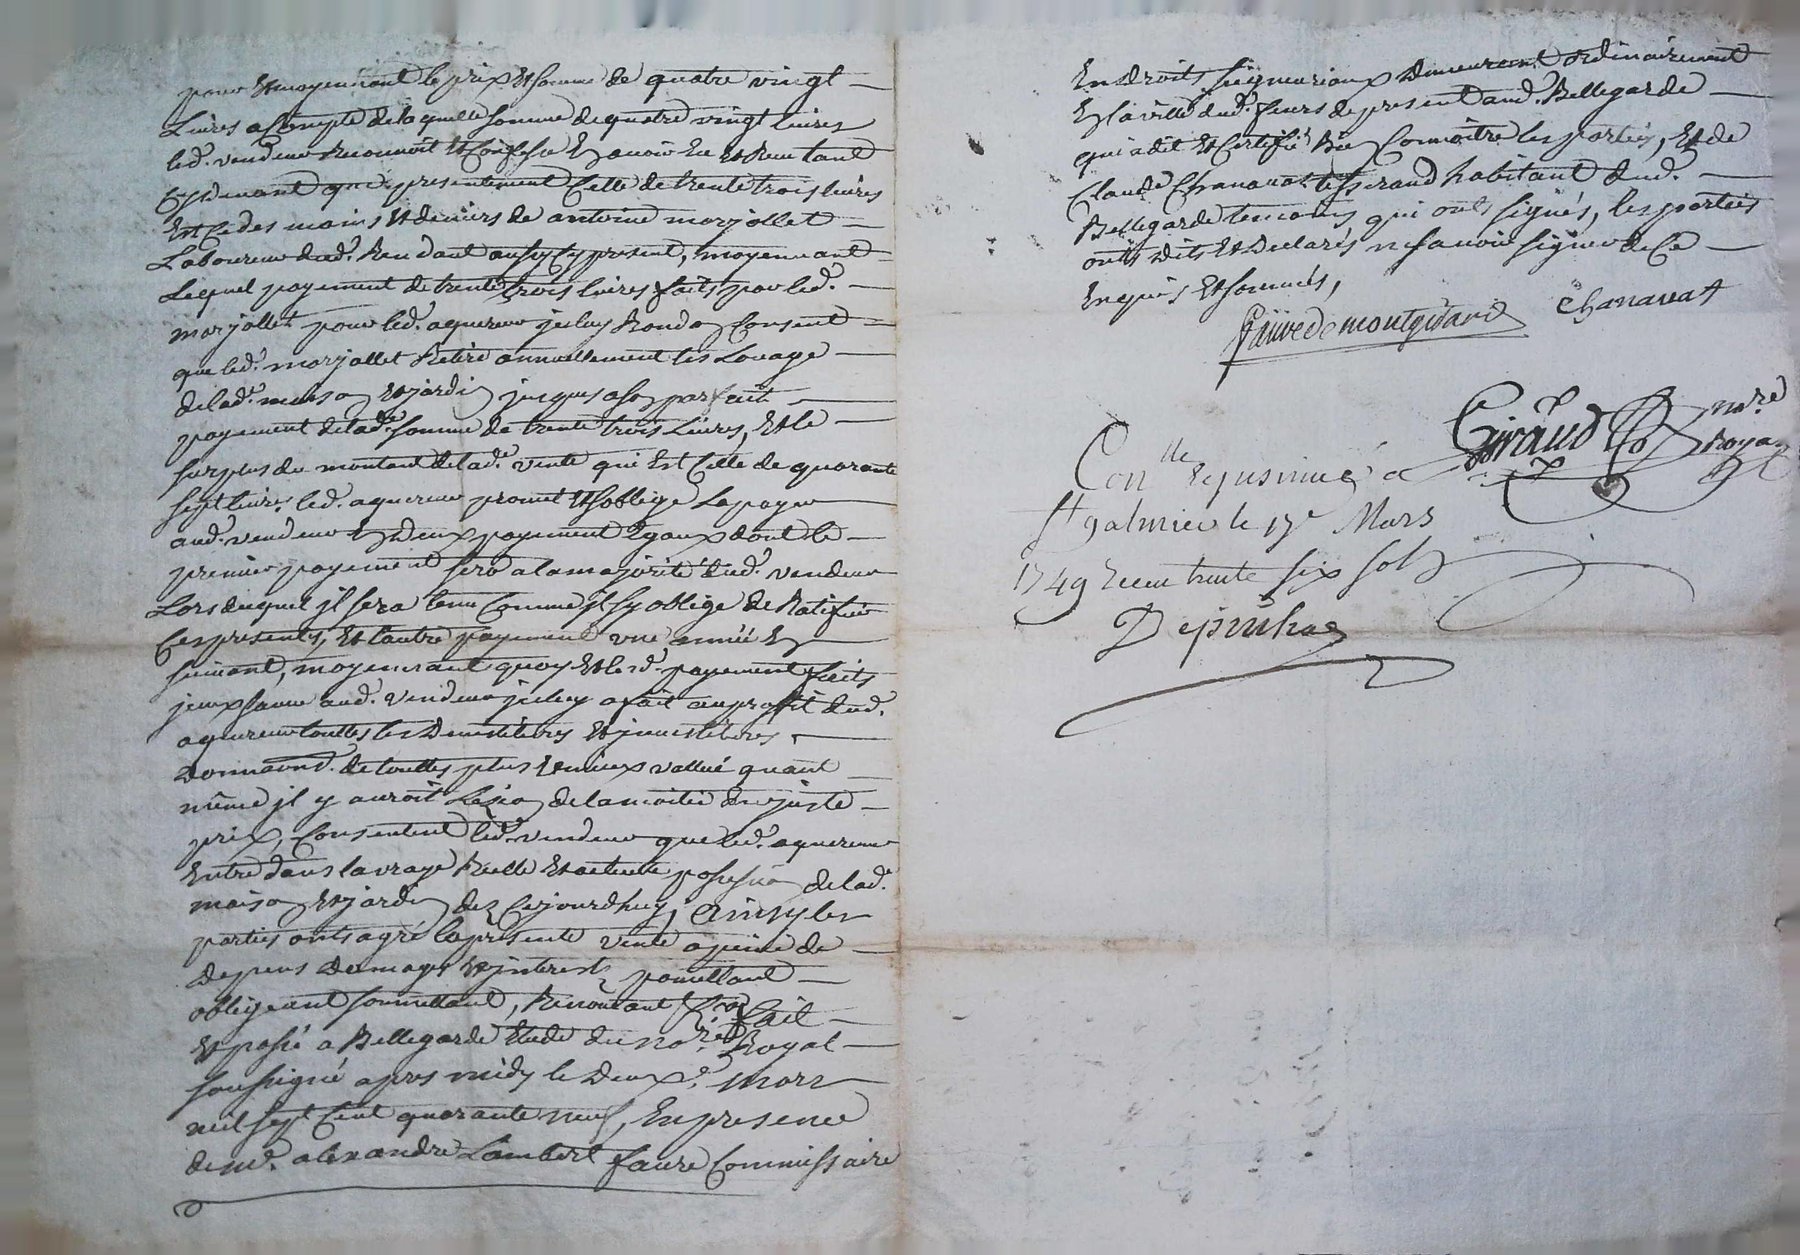 pour & moyennant le prix & somme de quatre vingt
Livres acompte de laquelle somme de quatre vingt livres
led. vendeur Reconnoit & Confesse En avoir Eu & Reçu tant
Cydevant que presentement Celle de trente trois livres
Et Ce des mains & deniers de antoine marjollet
Laboureur dud. present, moyennant
Lequel payement de trente trois livres faits par led.
marjollet pour led. aquereur jceluy Consent
que led. marjollet Retire annuellement les Louage
de lad. maison & jardin jusques a son parfait
payement de lad. somme de trente trois Livres, Et le
surplus du montant de lad. vente qui Est Celle de quarante
sept livres led. aquereur promet & soblige La payer
aud. vendeur En deux payement Egaux dont le
premier payement sera a la majorité dud. vendeur
Lors duquel jl sera tenu Comme jl sy oblige de Ratifier
Ces presentes, Et lautre payement une année En
suivant, moyennant quoy & lesd. payement faits
aud. vendeur jceluy a fait au profit dud.
aquereur touttes les Demistitions & jnvestitions
donnaons. de touttes plus & mieux vallué quant
même jl y auroit Lezion de la moitié du juste
prix, Consentent led. vendeur que led. aquereur
Entre dans la vraye Reelle & actuelle possession de lad.
maison & jardin dez Cejourdhuy, ainsy les
parties onts agré la presente vente a peine de
depens domages & jnterests promettant
obligeant soumettant, Renonçant fait
& passé a Bellegarde Etude du nore. Royal
soussigné apres midy le Deuxe. mars
mil sept Cent quarante neuf, En presence
de me. alexandre Lambert faure Commissaire
En droits seigneuriaux Demeurant ordinairement
En la ville de present aud. Bellegarde
qui a dit & Certifié Bien Connoitre les parties, & de
Claude Chanavat tisserand habitant dud.
Bellegarde temoins qui onts signés, les parties
onts dits & Declarés ne savoir signer de Ce
Enquis & sommés,
faure de montgirard Chanavat
Giraud nore Royal
Conlle & jnsinué a
St galmier le 17e Mars
1749 Receu trente six sols
Depinhac